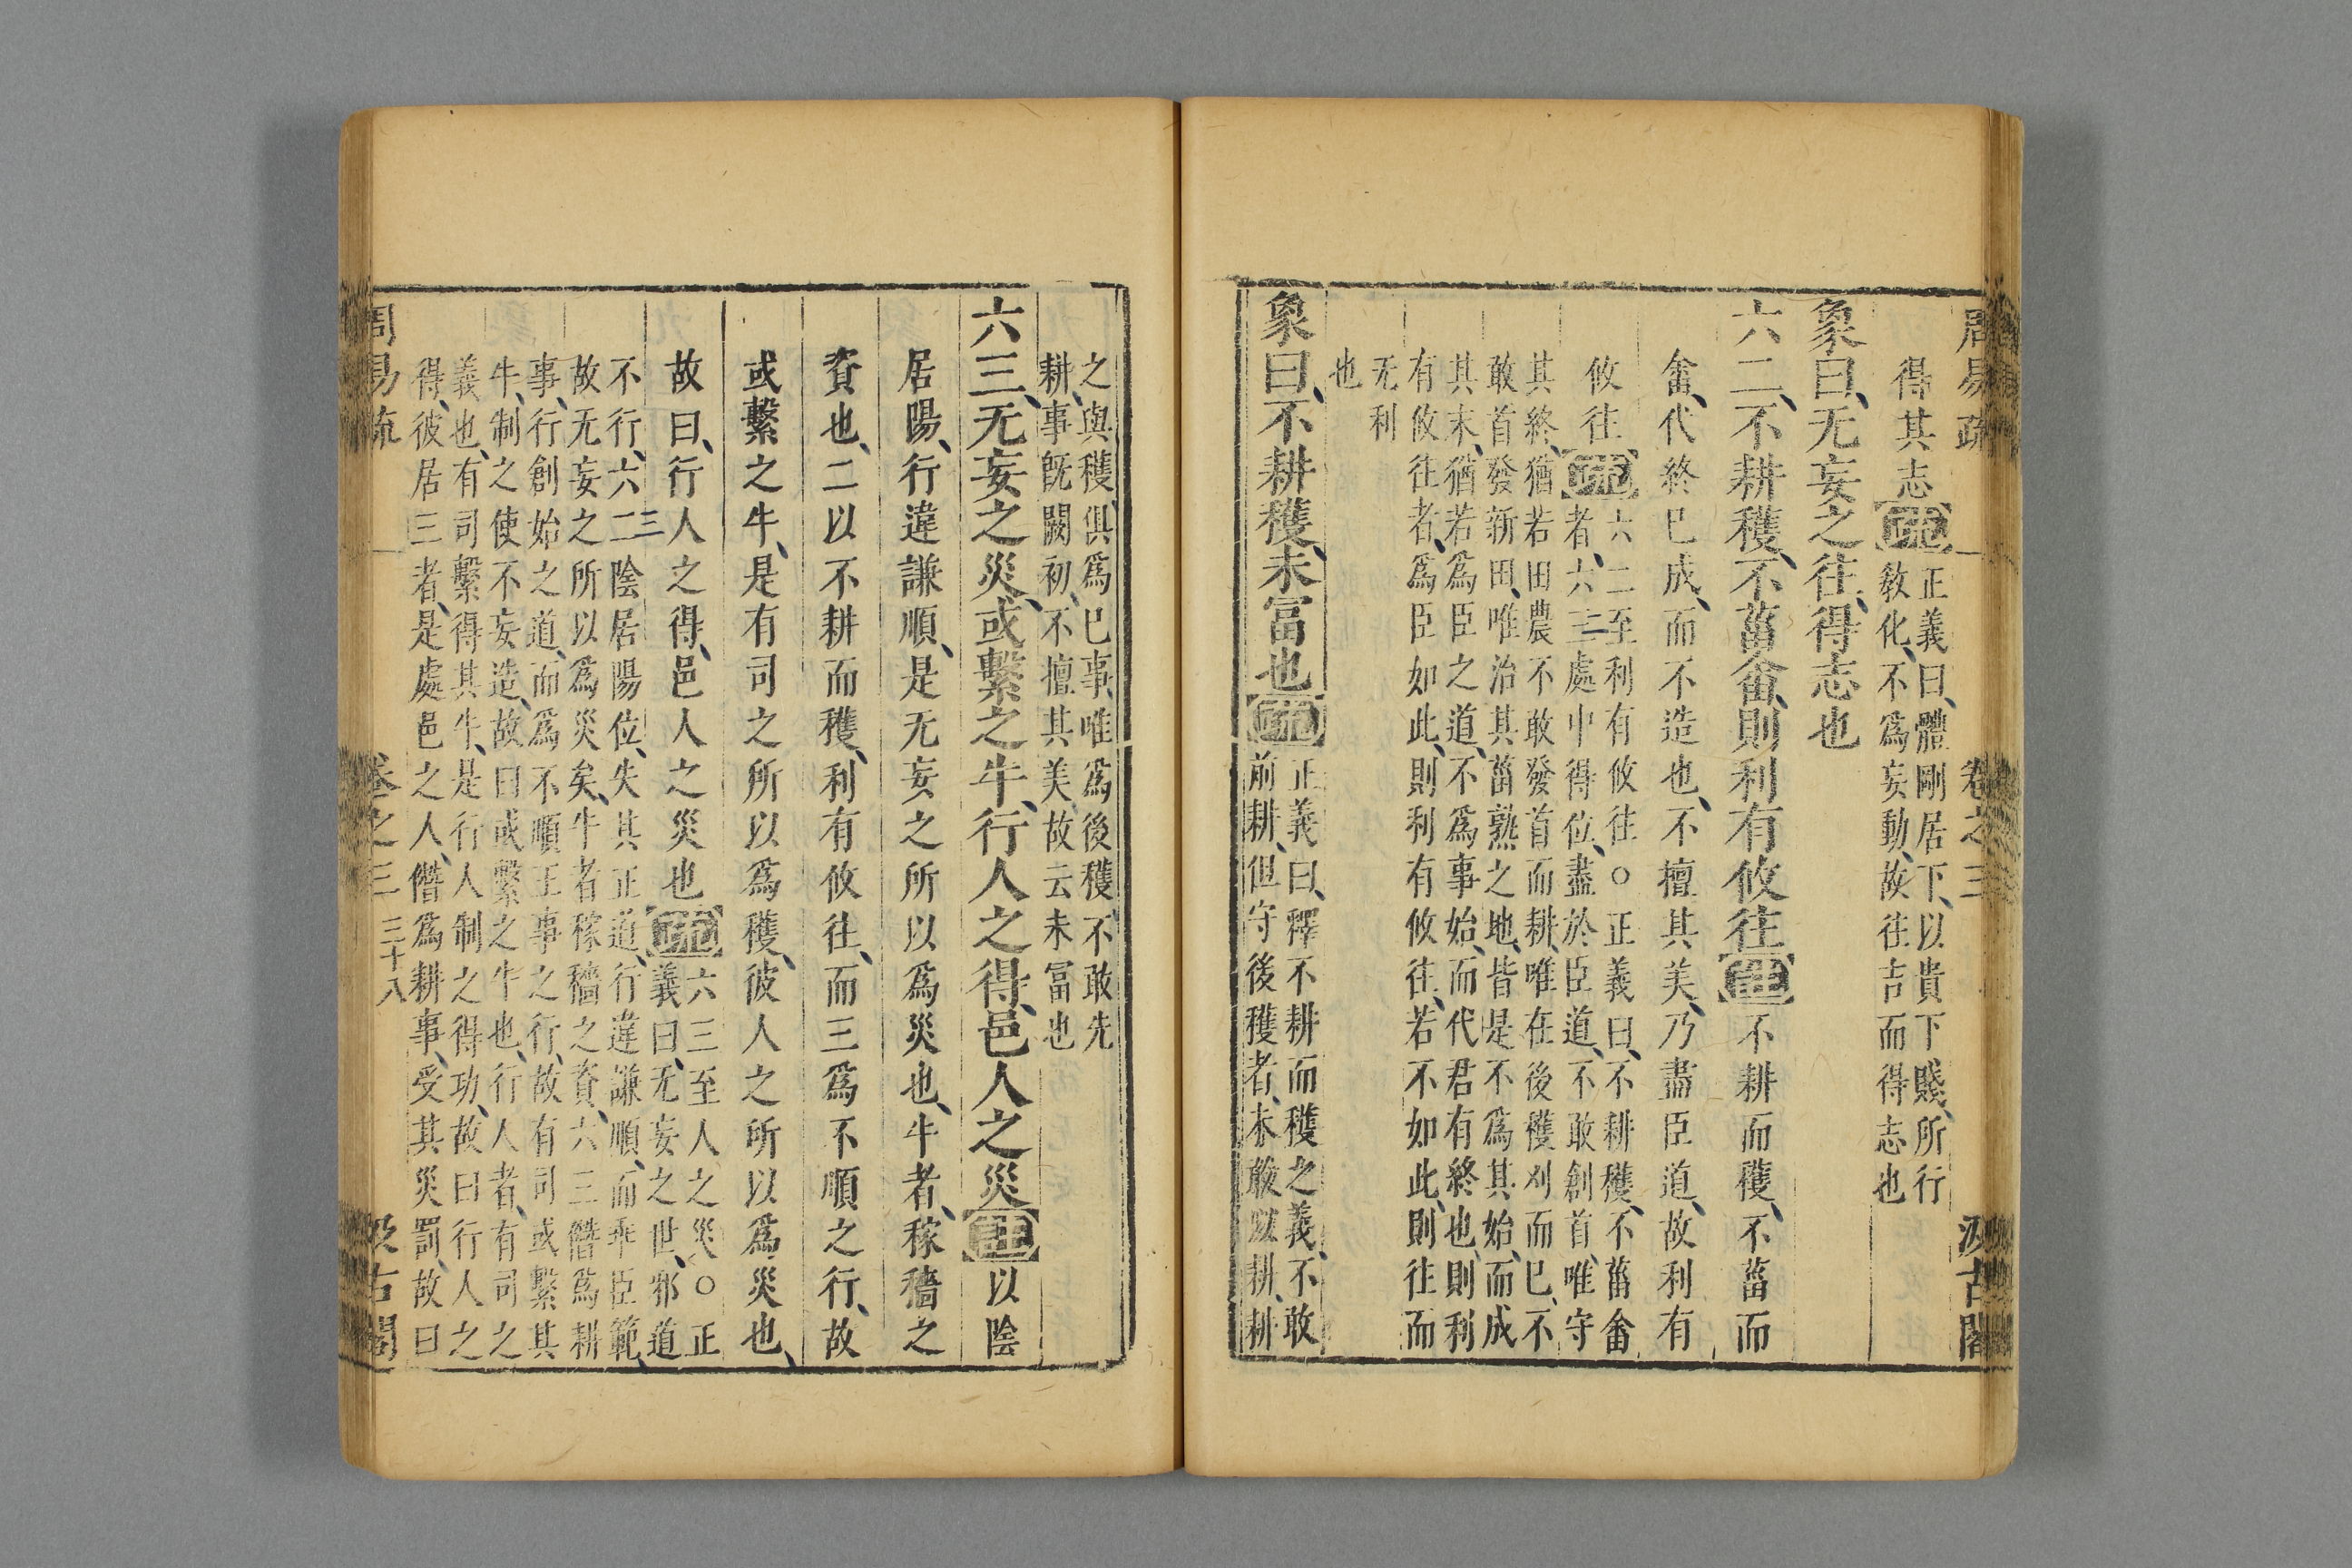 周易疏 卷之三 汲古閣
得其志疏正義曰體剛居下以貴下賤所行
教化不爲妄動故往吉而得志也
象曰无妄之往得志也
六二不耕穫不菑畬則利有攸往註不耕而穫不菑而
畬代終已成而不造也不擅其美乃盡臣道故利有
攸往疏六二至利有攸往○正義曰不耕穫不菑畬
者六二處中得位盡於臣道不敢創首唯守
其終猶若田農不敢發首而耕唯在後穫刈而已不
敢首發新田唯治其菑熟之地皆是不爲其始而成
其末猶若爲臣之道不爲事始而代君有終也則利
有攸往者爲臣如此則利有攸往若不如此則往而
无利
也
象曰不耕穫未富也疏正義曰釋不耕而穫之義不敢
前耕但守後穫者未敢以耕耕
之與穫俱爲已事唯爲後穫不敢先
耕事旣闕初不擅其美故云未冨也
六三无妄之災或繫之牛行人之得邑人之災註以陰
居陽行違謙順是无妄之所以爲災也牛者稼穡之
資也二以不耕而穫利有攸往而三爲不順之行故
或繫之牛是有司之所以爲穫彼人之所以爲災也
故曰行人之得邑人之災也疏六三至人之災○正
義曰无妄之世邪道
不行六三陰居陽位失其正道行違謙順而乖臣範
故无妄之所以爲災矣牛者稼穡之資六三僭爲耕
事行創始之道而爲不順王事之行故有司或繫其
牛制之使不妄造故曰或繫之牛也行人者有司之
義也有司繫得其牛是行人制之得功故曰行人之
得彼居三者是處邑之人僭爲耕事受其災罰故曰
周易疏 卷之三 三十八 汲古閣